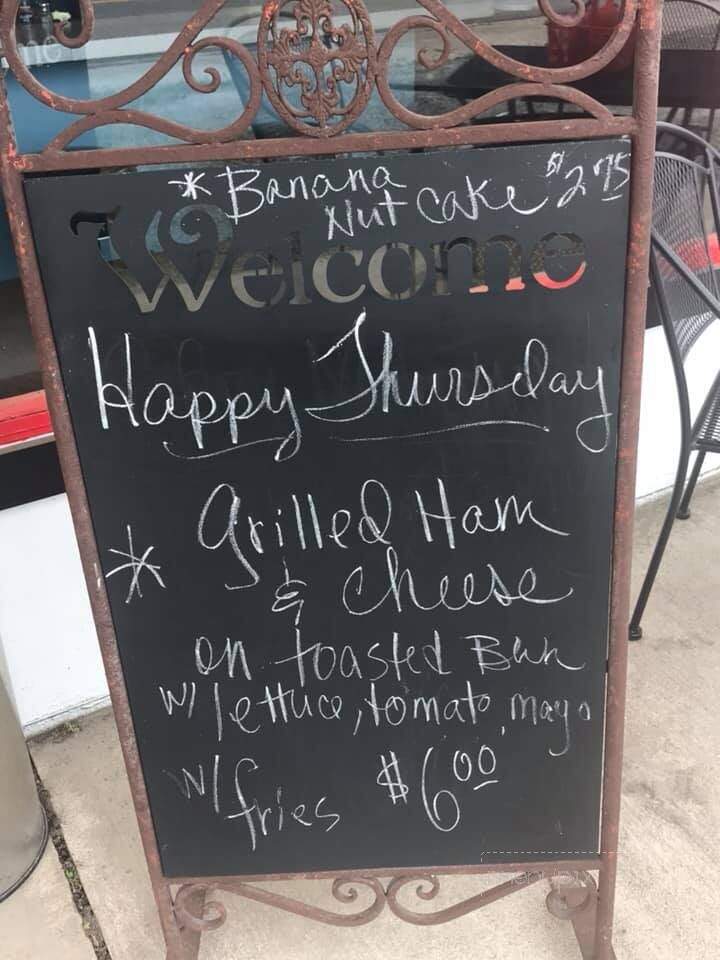 * Banana
Nut Cake $2.75
Welcome
Happy Thursday
* Grilled Ham
& Cheese
on toasted Bun
w/ lettuce, tomato, mayo
w/ fries $6.00